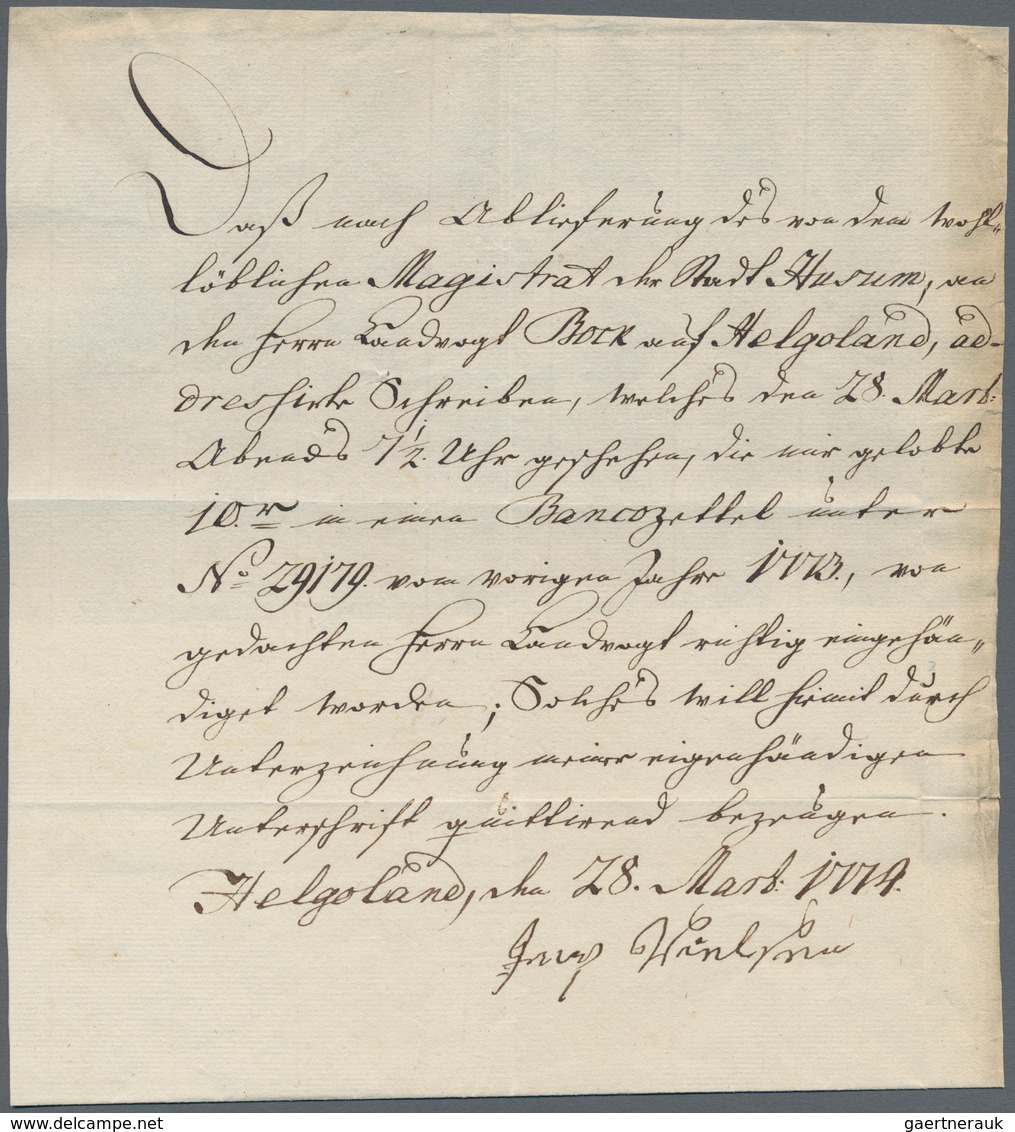 Daß nach Ablieferung des von dem wohl„
löblichen Magistrat der Stadt Husum, an
den Herrn Landvogt Bock auf Helgoland, ad-
dressirte Schreiben, welches den 28. Mart:
Abends 7½. Uhr geschehen, die mir gelobte
10. r in einen Bancozettel unter
No 29179. vom vorigen Jahre 1773., von
gedachten Herrn Landvogt richtig eingehän„
diget worden; Solches will hiemit durch
Unterzeichnung meiner eigenhändigen
Unterschrift quittirend bezeugen.
Helgoland, den 28. Mart: 1774.
Nielsen
www.delcampe.net
gaertnerauk